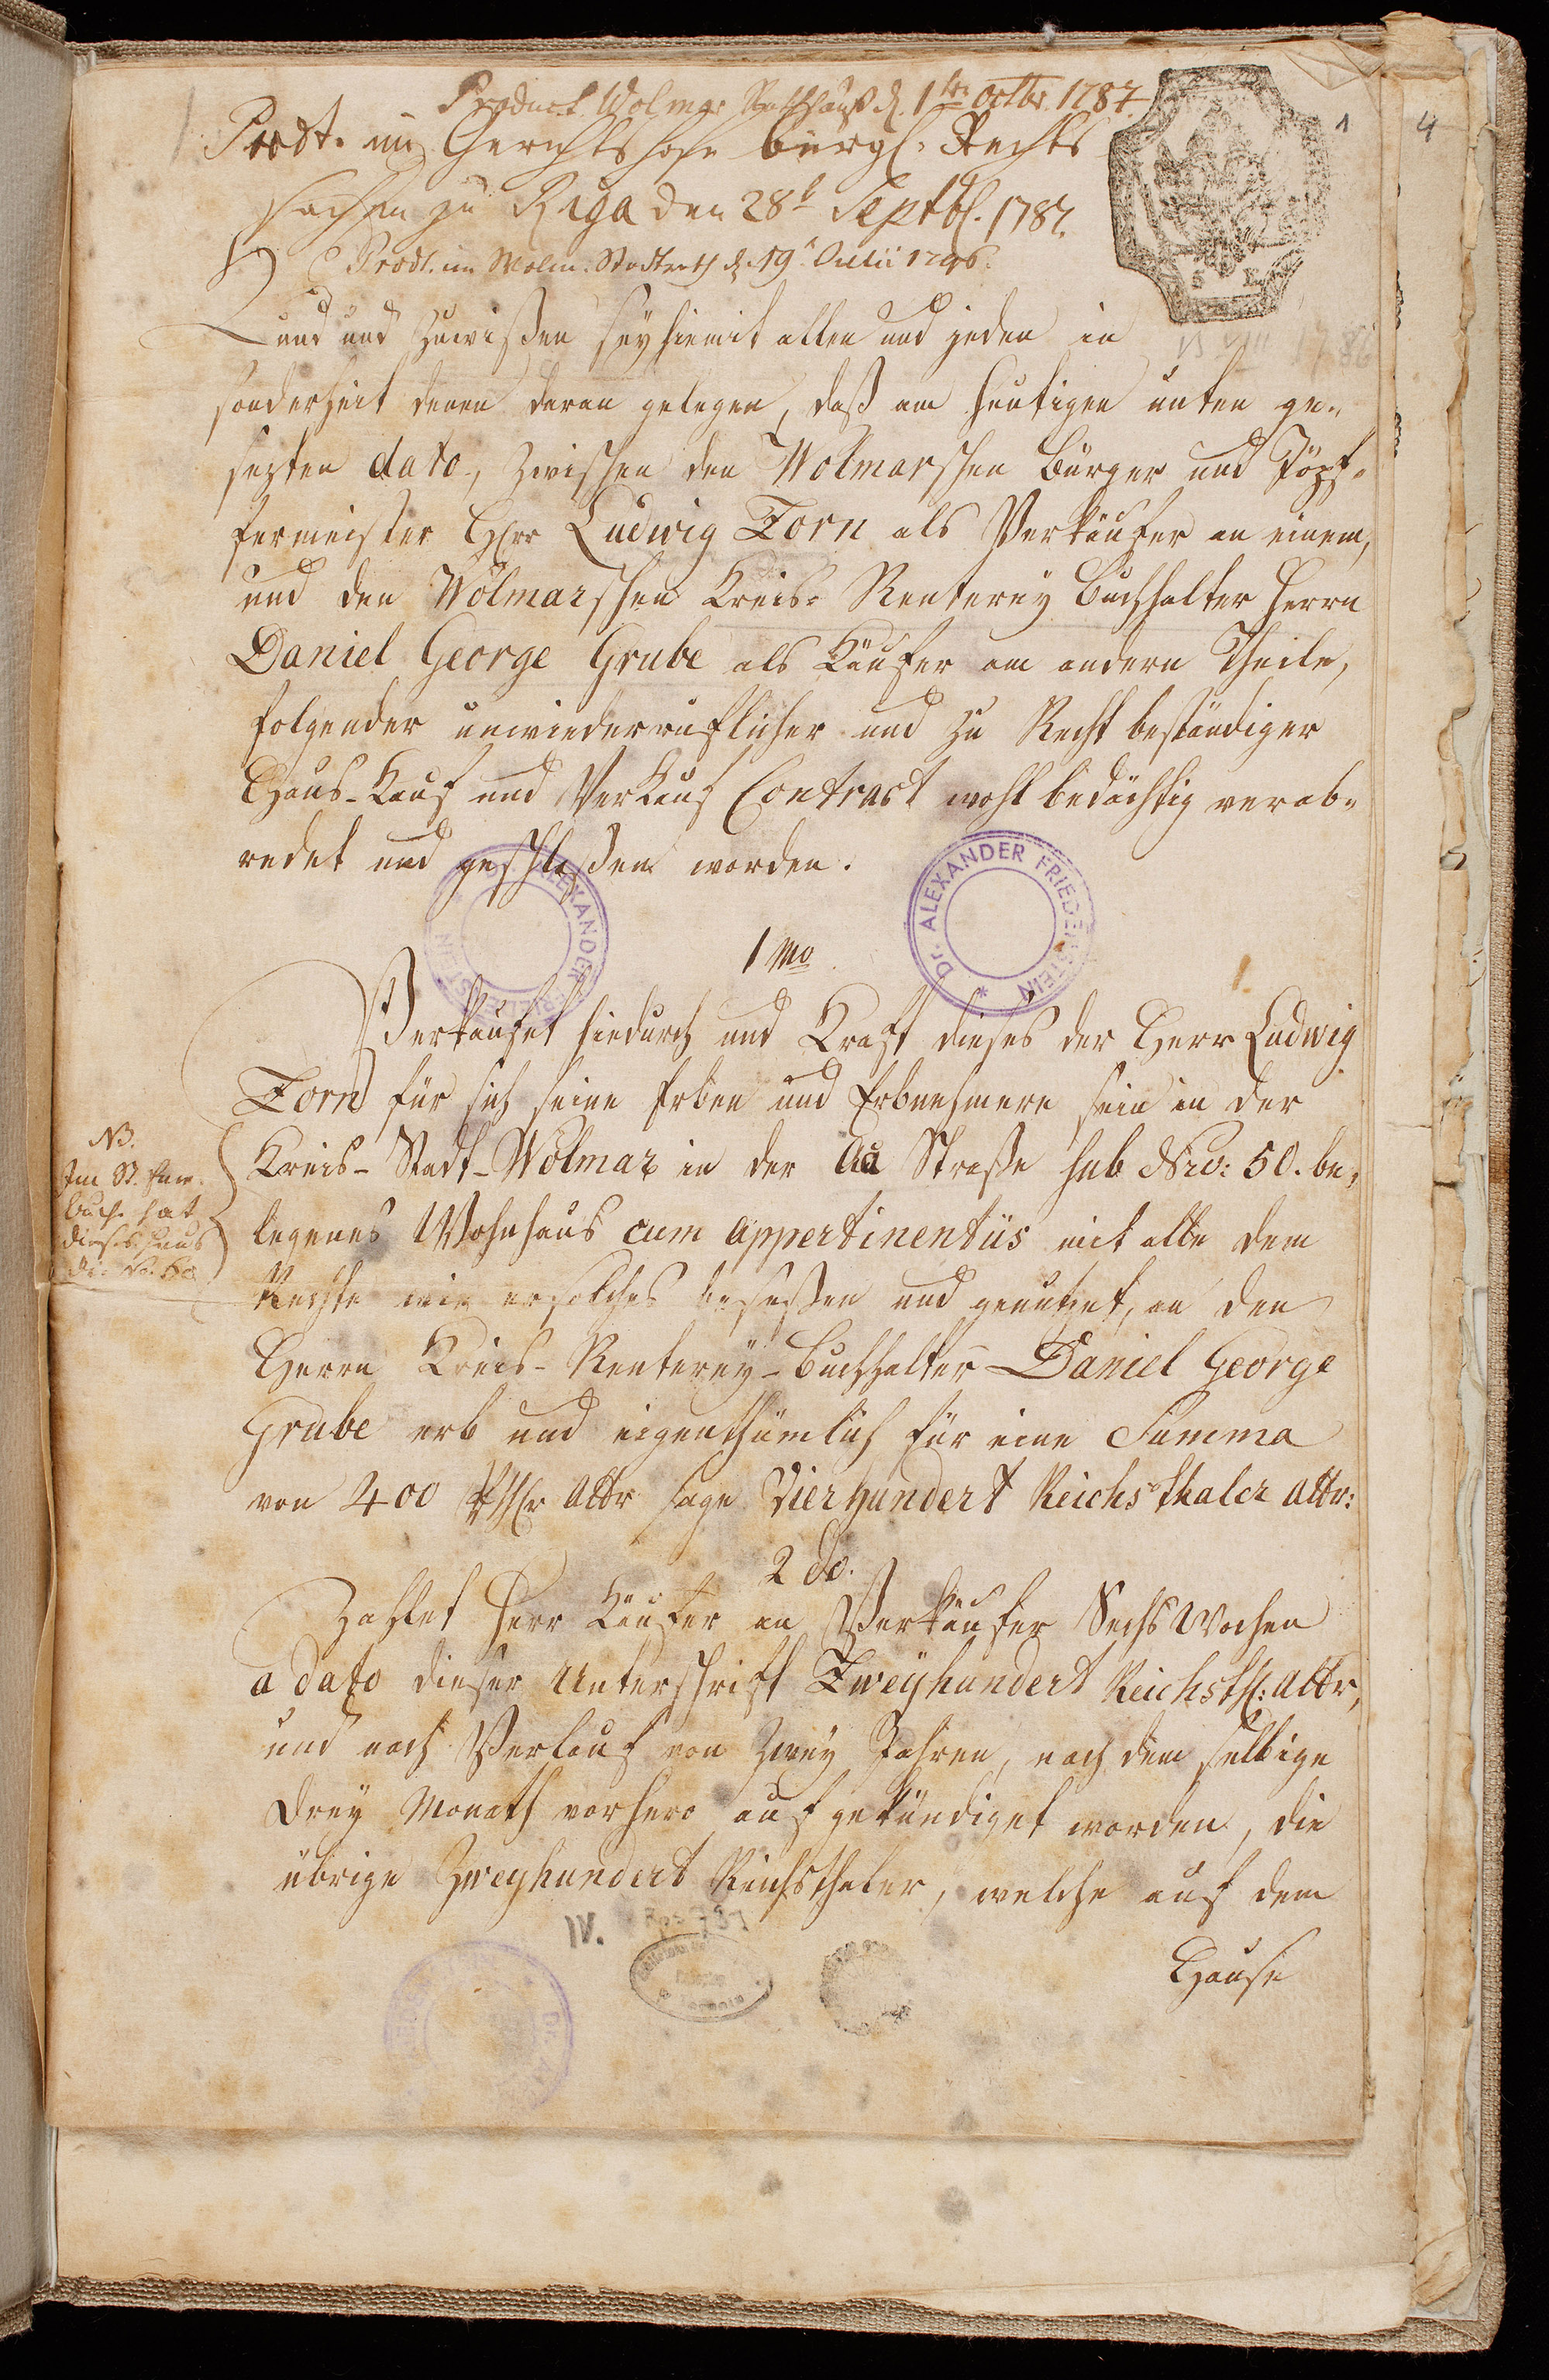 Product. Wolmar Rathhauß d. 1ten Octbr. 1787.
Prodt. im Gerichtshofe bürgl. Rechts
sachen zu Riga den 28t Septbl. 1787.
Prodt. im Wolm: Stadtrath d. 19t Julii 1796.
1
4
Kund und zuwißen sey hiemit allen und jeden in
sonderheit denen daran gelegen, daß am heutigen unten ge=
sezten dato, zwischen den Wolmarschen Bürger und Töpf=
fermeister Herr Ludwig Zorn als Verkäufer an einem,
und den Wolmarschen Kreis= Renterey Buchhalter Herrn
Daniel George Grube als Käufer am andern Theile,
folgender unwiederruflicher und zu Recht beständiger
Haus-Kauf und Verkauf Contract wohlbedächtig verab=
redet und geschloßen worden.
Dr. ALEXANDER FRIEDENSTEIN *
Dr. ALEXANDER FRIEDENSTEIN
1mo
Verkaufet hiedurch und Kraft dieses der Herr Ludwig
Zorn für sich seine Erben und Erbnehmern sein in der
Kreis-Stadt-Wolmar in der Aa Straße sub Nro: 50. be=
legenes Wohnhaus cum appertinentiis mit alle dem
Rechte wie er solches beseßen und genutzet, an den
Herrn Kreis-Renterey-Buchhalter Daniel George
Grube erb und eigenthümlich für eine Summa
von 400 Rthlr Albr sage Vierhundert Reichsthaler Albr:
NB.
Im St.
buch hat
dieses Haus
die No. 50
2do.
Zahlet Herr Käufer an Verkäufer Sechs Wochen
a dato dieser Unterschrift Zweyhundert Reichsthl: Albr,
und nach Verlauf von Zwey Jahren, nach dem selbige
drey Monath vorhero aufgekündiget worden, die
übrige Zweyhundert Reichsthaler, welche auf dem
Hause
IV.